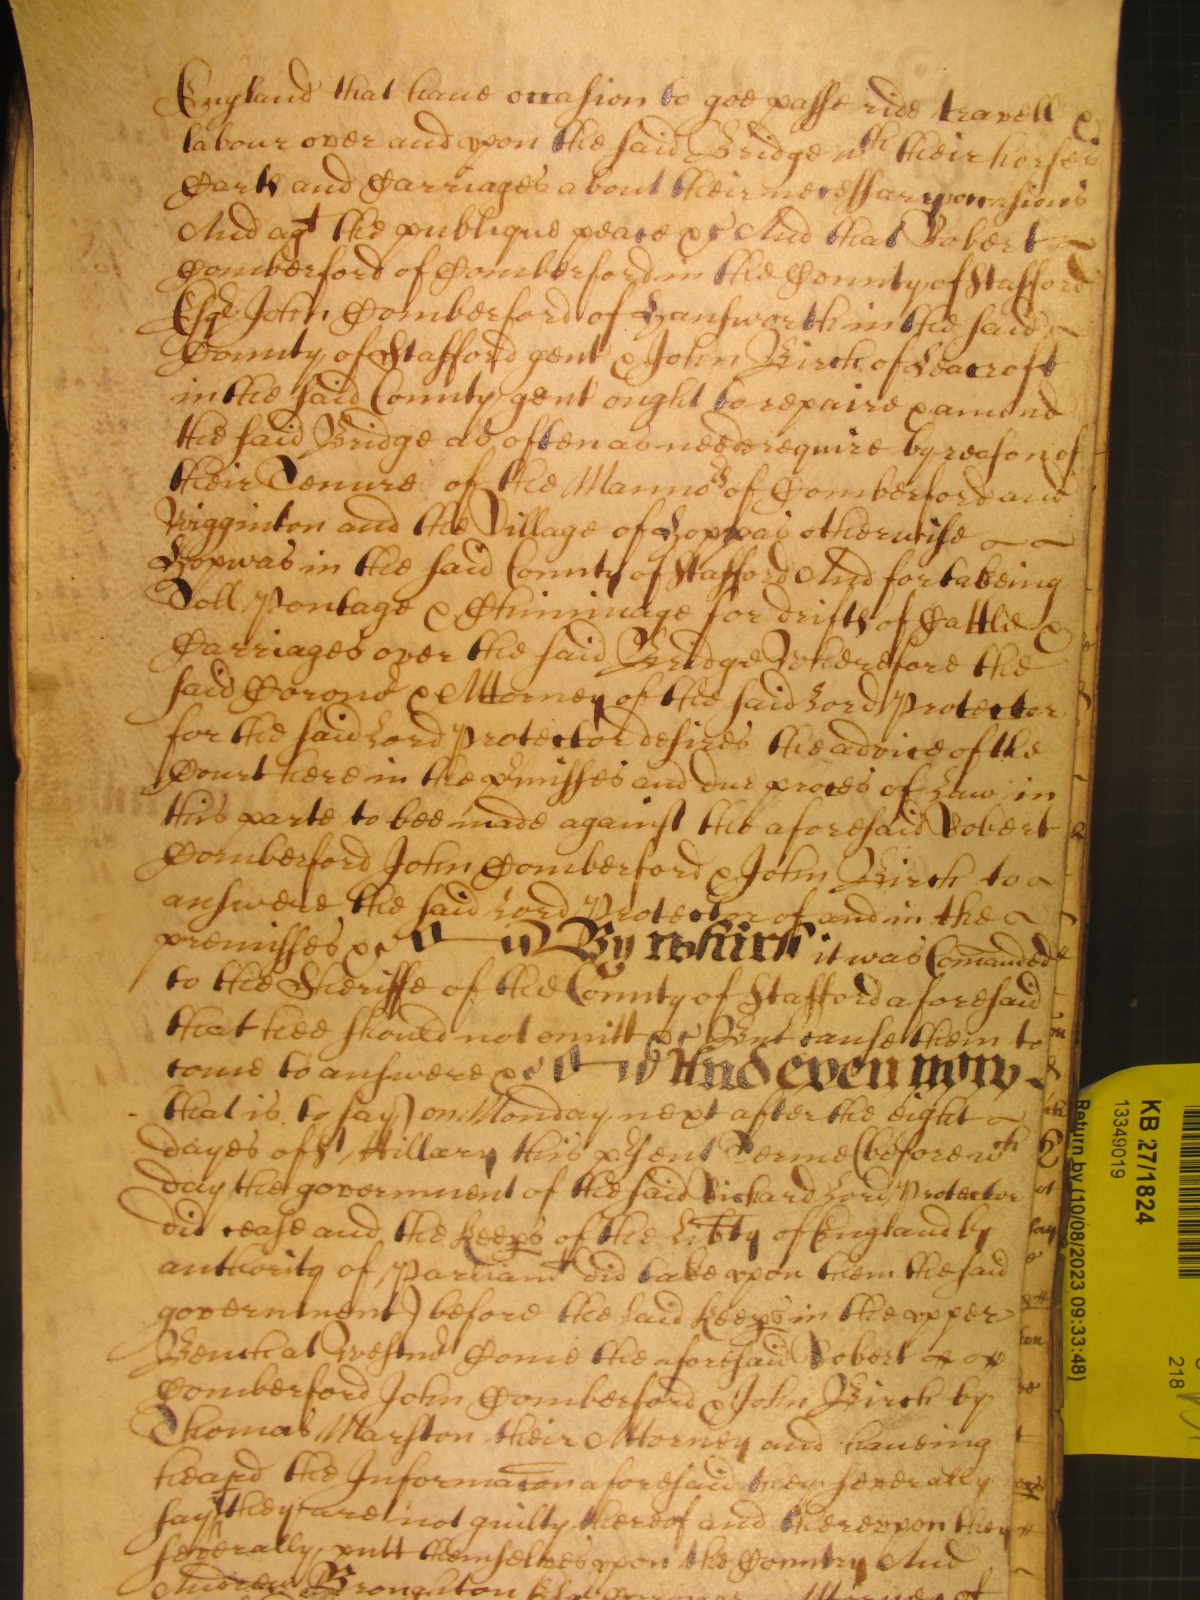 England that have occasion to goe passe ride travell &
labour over and upon the said Bridge wth their horses
Carts and Carriages about their necessary occasions
And agt the publique peace &c And that Robert
Comberford of Comberford in the County of Stafford
Esqr John Comberford of Hansworth in the said
County of Stafford gent & John Birch of Leacroft
in the said County gent ought to repaire & amend
the said Bridge as often as neede require by reason of
their Tenure of the Mannors of Comberford and
Wigginton and the Village of Hoppas otherwise
Hopwas in the said County of Stafford And for takeing
Toll Pontage & Chiminage for drifts of Cattle &
Carriages over the said Bridge Wherefore the
said Corone & Attorney of the said Lord Protector
for the said Lord Protector desires the advice of the
Court here in the pmisses and due proces of Law in
this parte to bee made against the aforesaid Robert
Comberford John Comberford & John Birch to
answere the said Lord Protector of and in the
premisses &c By which it was Comanded
to the Sheriffe of the County of Stafford aforesaid
that hee should not omitt &c But cause them to
come to answere &c And even now
that is to say on Monday next after the eight
dayes of St Hillary this psent Terme (before wch
day the government of the said Richard Lord Protector
did cease and the keeps of the Libty of England by
authority of Parliamt did take upon them the said
government) before the said keeps in the upper
Bench at Westmr Come the aforesaid Robert
Comberford John Comberford & John Birch by
Thomas Marston their Attorney and haveing
heard the Informacon aforesaid they severally
say they are not guilty thereof and thereupon they
severally putt themselves upon the Country And
Andrew Broughton Esq Coroner Attorney of
KB 27/1824
13349019
Return by (10/08/2023 09:33:48)
218